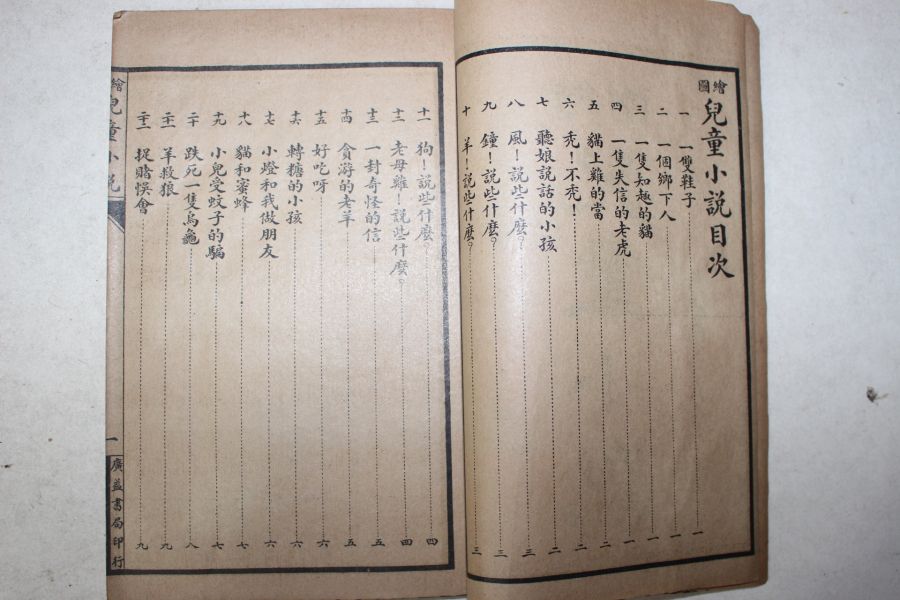 繪圖兒童小說目次
一 一雙鞋子 一
二 一個鄉下人 一
三 一隻知趣的貓 一
四 一隻失信的老虎 一
五 貓上雞的當 二
六 禿！不禿！ 二
七 聽娘說話的小孩 二
八 風！說些什麼？ 三
九 鐘！說些什麼？ 三
十 羊！說些什麼？ 三
十一 狗！說些什麼？ 四
十二 老母雞！說些什麼？ 四
十三 一封奇怪的信 五
十四 貪游的老羊 五
十五 好吃呀 六
十六 轉糖的小孩 六
十七 小燈和我做朋友 六
十八 貓和蜜蜂 七
十九 小兒受蚊子的騙 七
二十 跌死一隻烏龜 八
二十一 羊救狼 九
二十二 捉賭悞會 九
繪 兒童小說
一
廣益書局印行